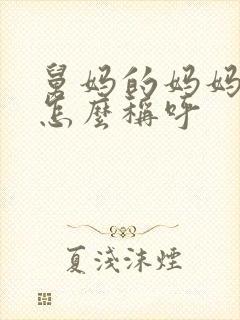 舅妈的妈妈
怎麼稱呼
夏淺沫煙